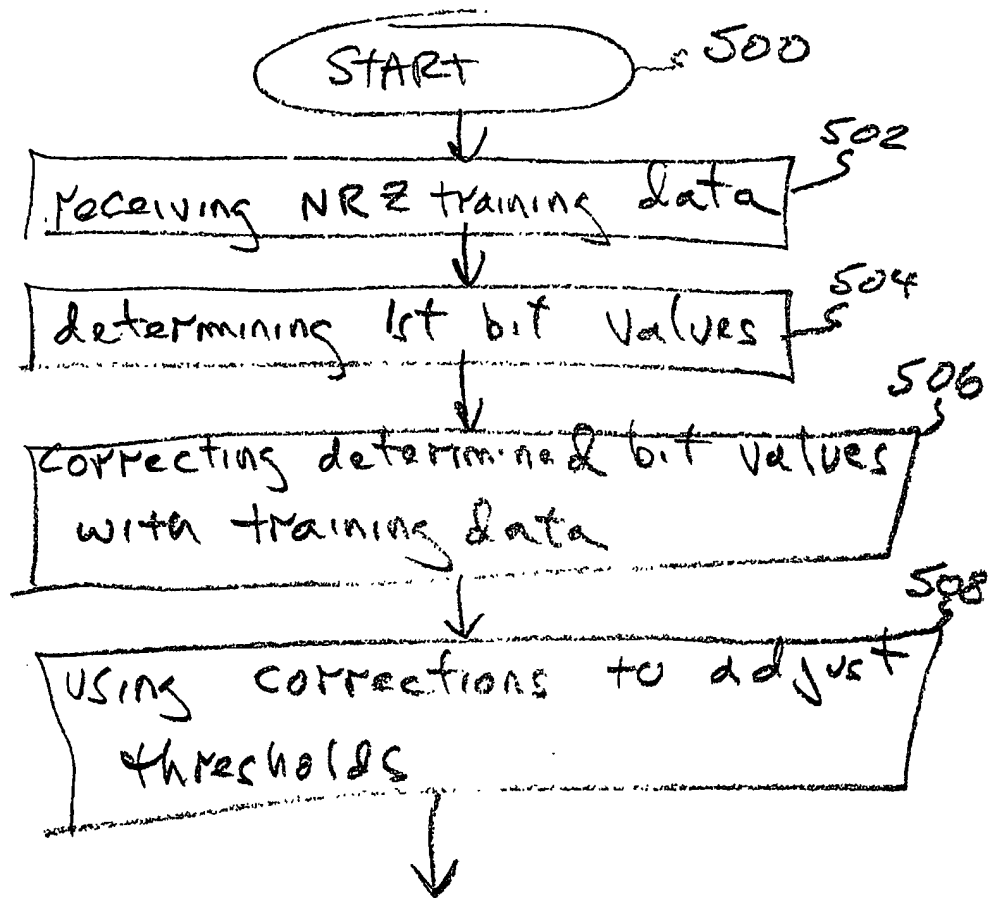 START 500
502
receiving NRZ training data
504
determining 1st bit values
506
correcting determined bit values
with training data
508
using corrections to adjust
thresholds